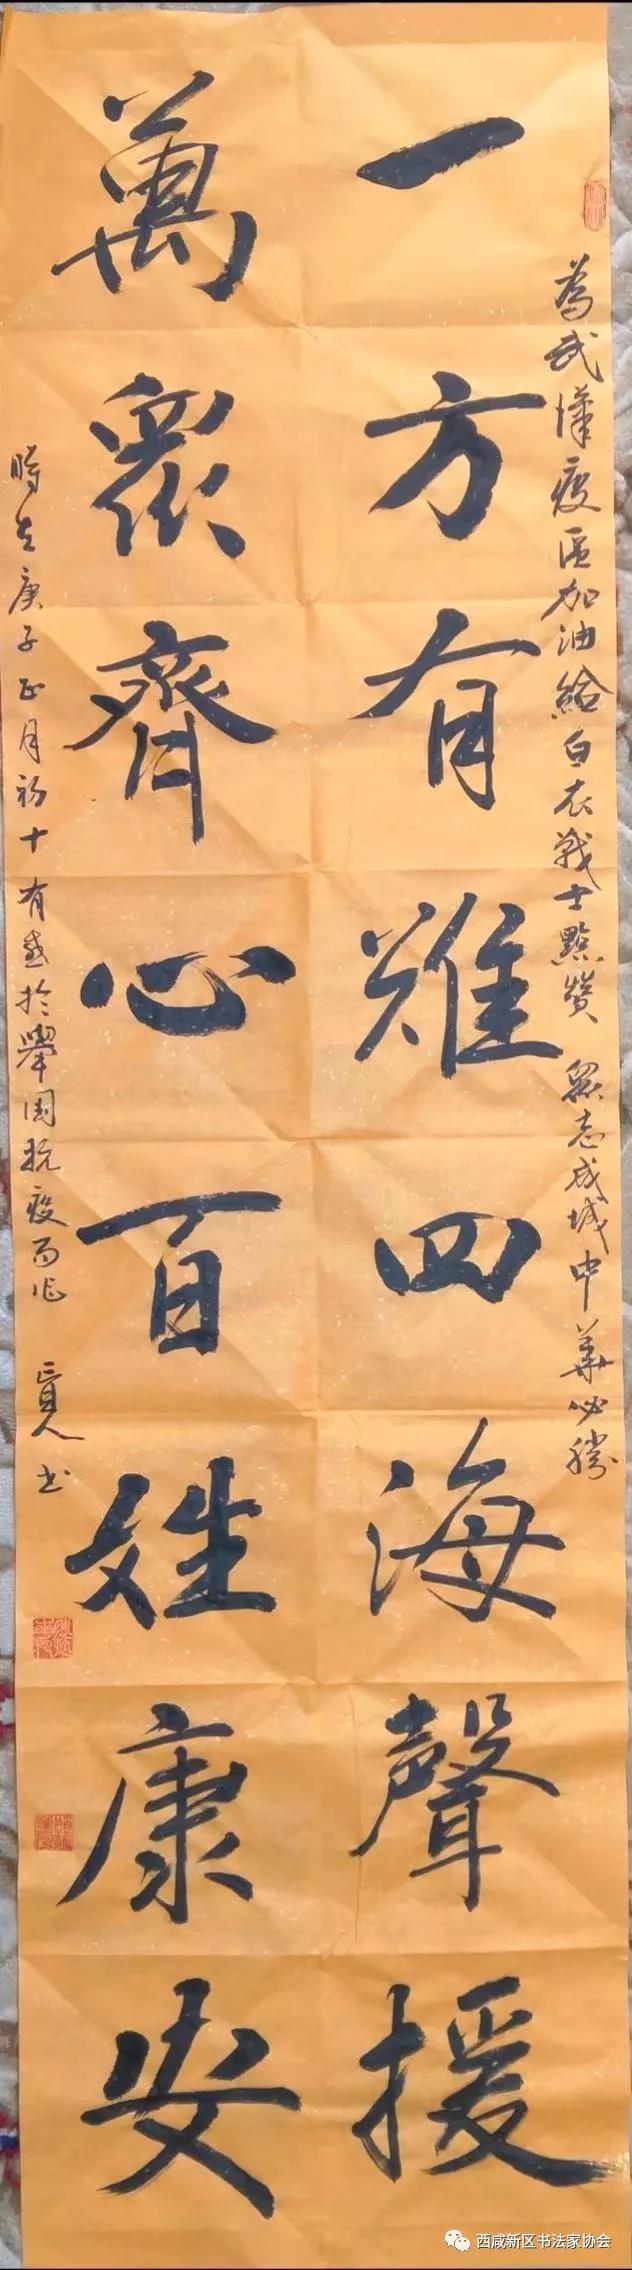 為武漢疫區加油給白衣戰士點贊 眾志成城中華必勝
一方有難四海聲援
萬眾齊心百姓康安
時在庚子正月初十有感於舉國抗疫而作 賢人書
西咸新区书法家协会